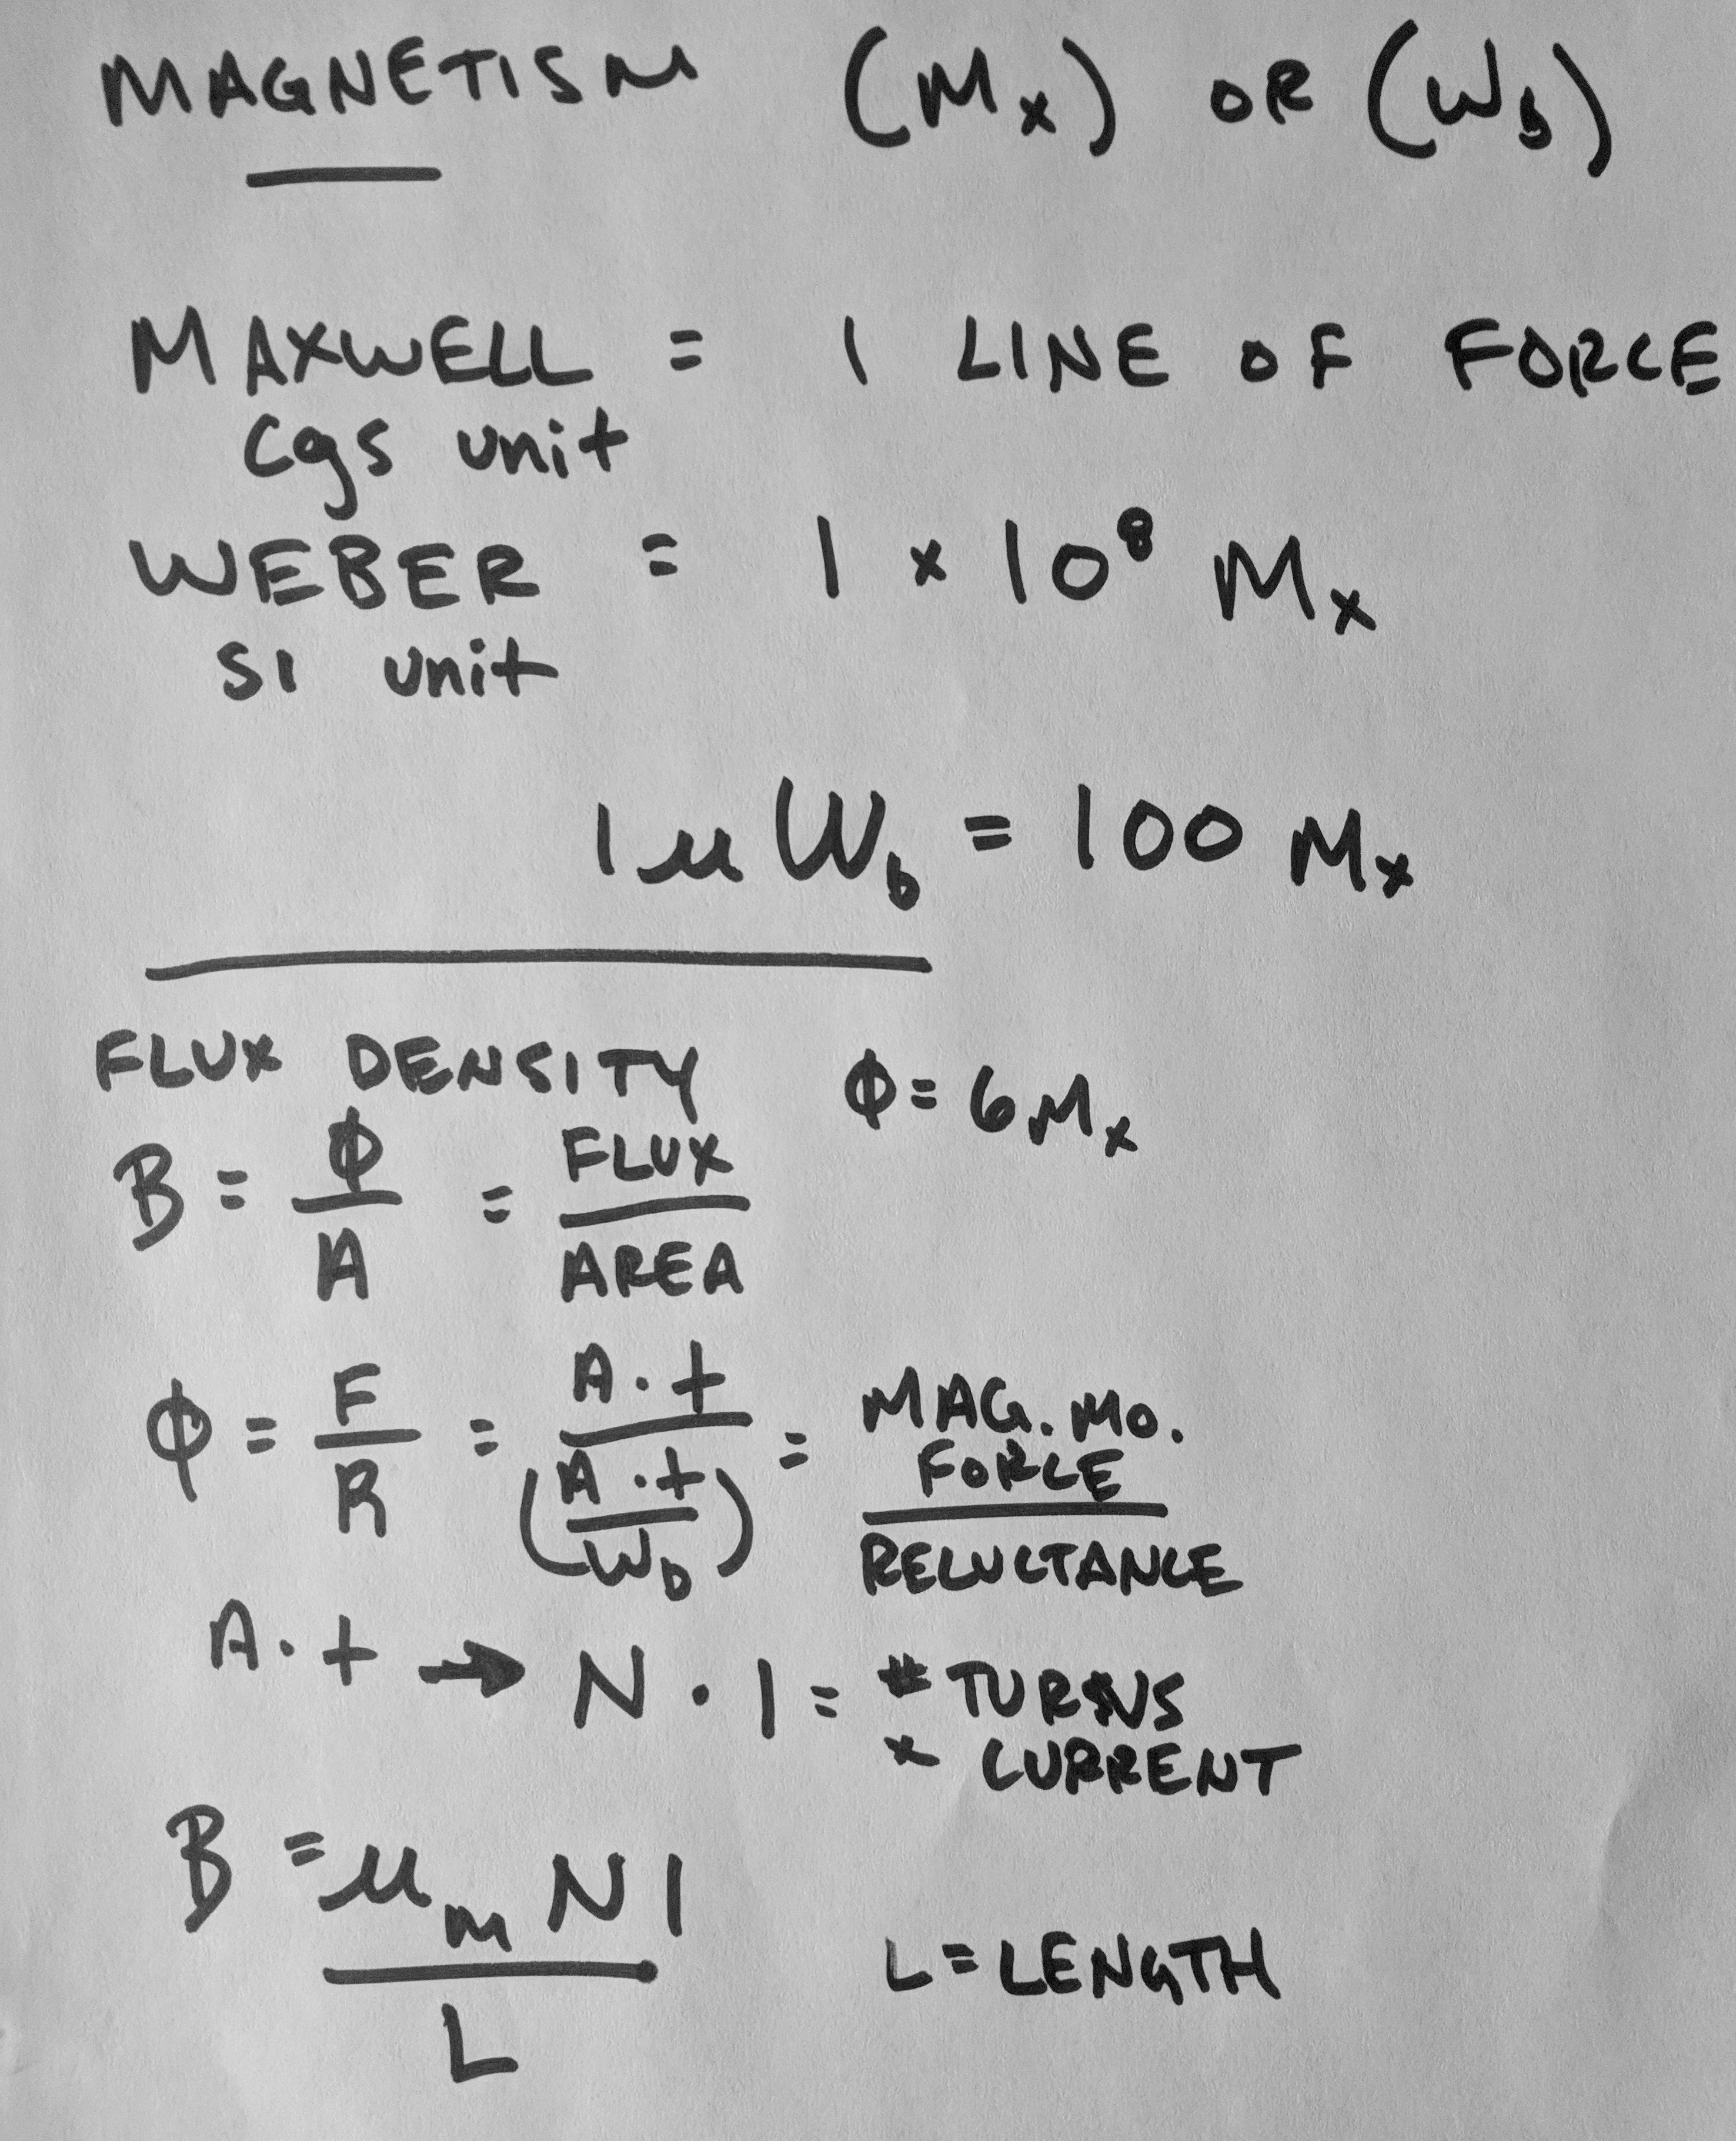 MAGNETISM (Mx) OR (Wb)
MAXWELL = 1 LINE OF FORCE
cgs unit
WEBER = 1 x 10⁸ Mx
SI unit
1 μ Wb = 100 Mx
FLUX DENSITY Φ = 6 Mx
B = Φ/A = FLUX/AREA
Φ = F/R = A·t/(A·t/Wb) = MAG. MO. FORCE/RELUCTANCE
A·t → N·I = # TURNS
x CURRENT
B = μm N I / L
L = LENGTH